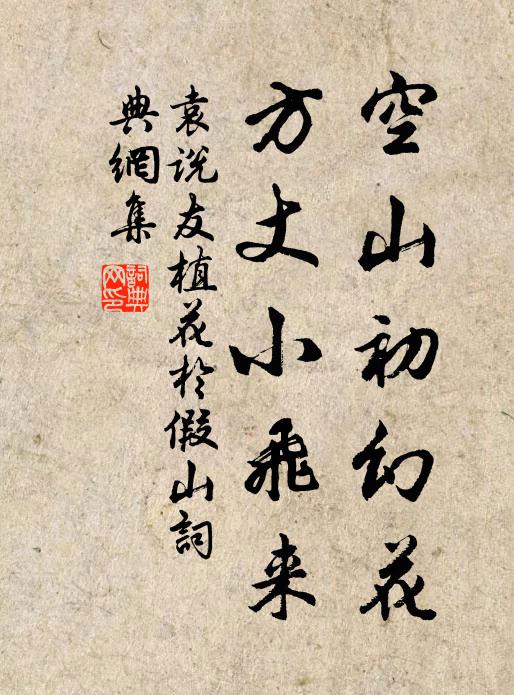 空山初幻花
方丈小飛来
袁说友植花於假山詞
典網集
詞典
网印